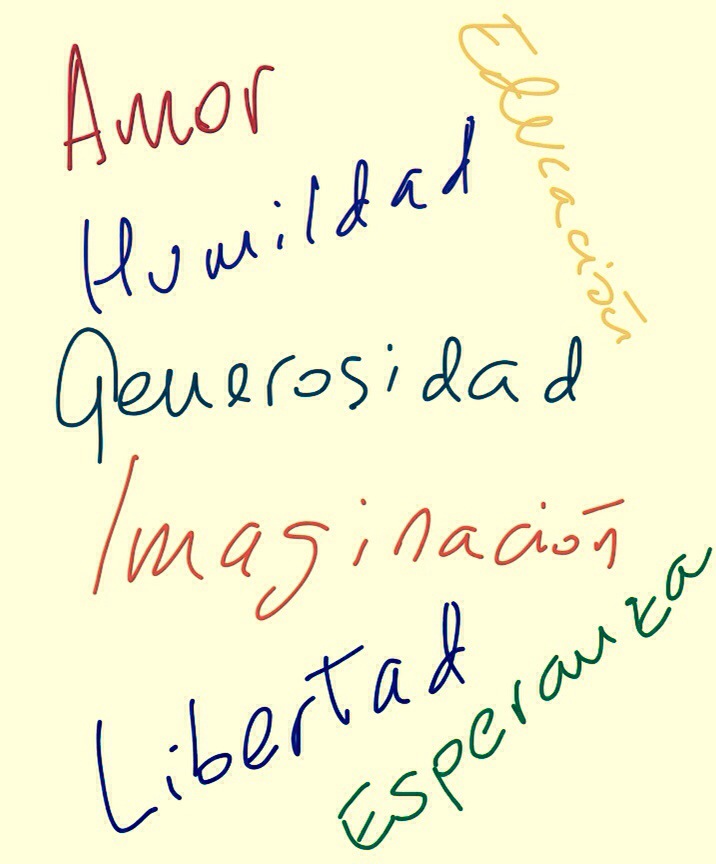 Amor
Educación
Humildad
Generosidad
Imaginación
Libertad
Esperanza